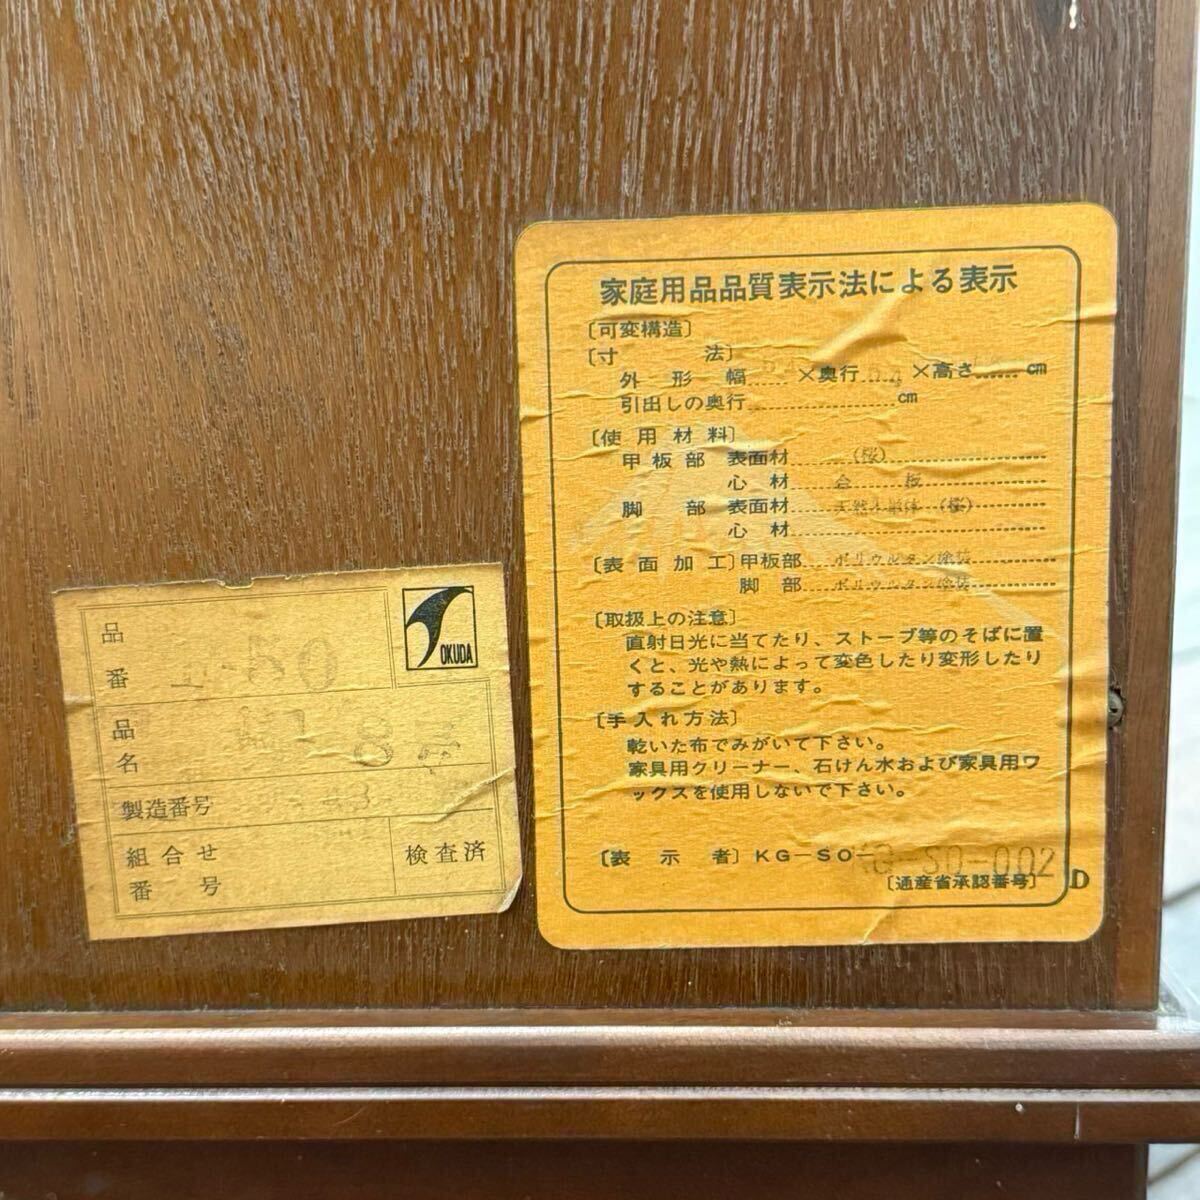 家庭用品品質表示法による表示
〔可変構造〕
〔寸法〕
外形幅 ×奥行 ×高さ cm
引出しの奥行 cm
〔使用材料〕
甲板部 表面材 (桜)
心材 合 板
脚部 表面材 天然木単体 (桜)
心材
〔表面加工〕甲板部 ポリウレタン塗装
脚部 ポリウレタン塗装
〔取扱上の注意〕
直射日光に当てたり、ストーブ等のそばに置
くと、光や熱によって変色したり変形したり
することがあります。
〔手入れ方法〕
乾いた布でみがいて下さい。
家具用クリーナー、石けん水および家具用ワ
ックスを使用しないで下さい。
〔表示者〕KG-SO- KG-SO-002
〔通産省承認番号〕 D
品番 50
OKUDA
品名 8
製造番号
組合せ番号
検査済